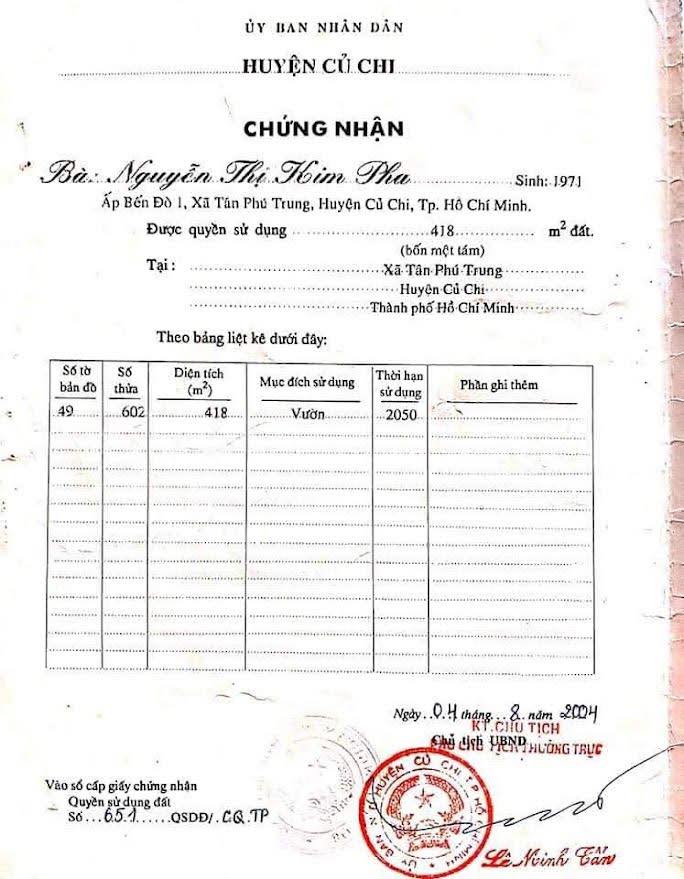 ỦY BAN NHÂN DÂN
HUYỆN CỦ CHI
CHỨNG NHẬN
Bà: Nguyễn Thị Kim Pha Sinh: 1971
Ấp Bến Đò 1, Xã Tân Phú Trung, Huyện Củ Chi, Tp. Hồ Chí Minh.
Được quyền sử dụng 418 m² đất.
(bốn một tám)
Tại : Xã Tân Phú Trung
Huyện Củ Chi
Thành phố Hồ Chí Minh
Theo bảng liệt kê dưới đây:
Số tờ bản đồ Số thửa Diện tích (m²) Mục đích sử dụng Thời hạn sử dụng Phần ghi thêm
49 602 418 Vườn 2050
Ngày 04 tháng 8 năm 2004
KT.CHỦ TỊCH
Chủ tịch UBND
PHÓ CHỦ TỊCH THƯỜNG TRỰC
Vào sổ cấp giấy chứng nhận
Quyền sử dụng đất
Số 651 QSDĐ/ CQ.TP
ỦY BAN N.D HUYỆN CỦ CHI T.P HỒ CHÍ MINH
Lê Minh Tấn